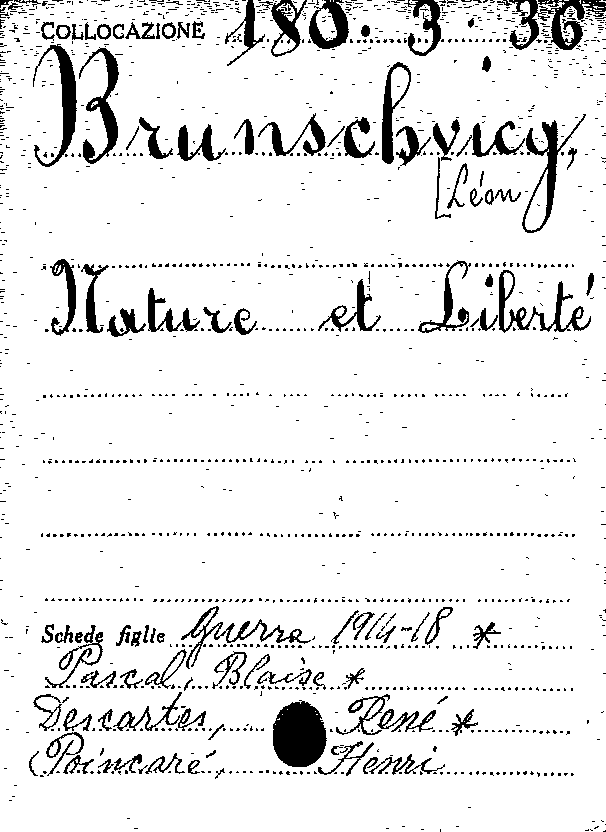 COLLOCAZIONE 180. 3. 36
Brunschvicg,
[Léon
Nature et Liberté
Schede figlie Guerra 1914-18 *
Pascal, Blaise *
Descartes, René *
Poincaré, Henri